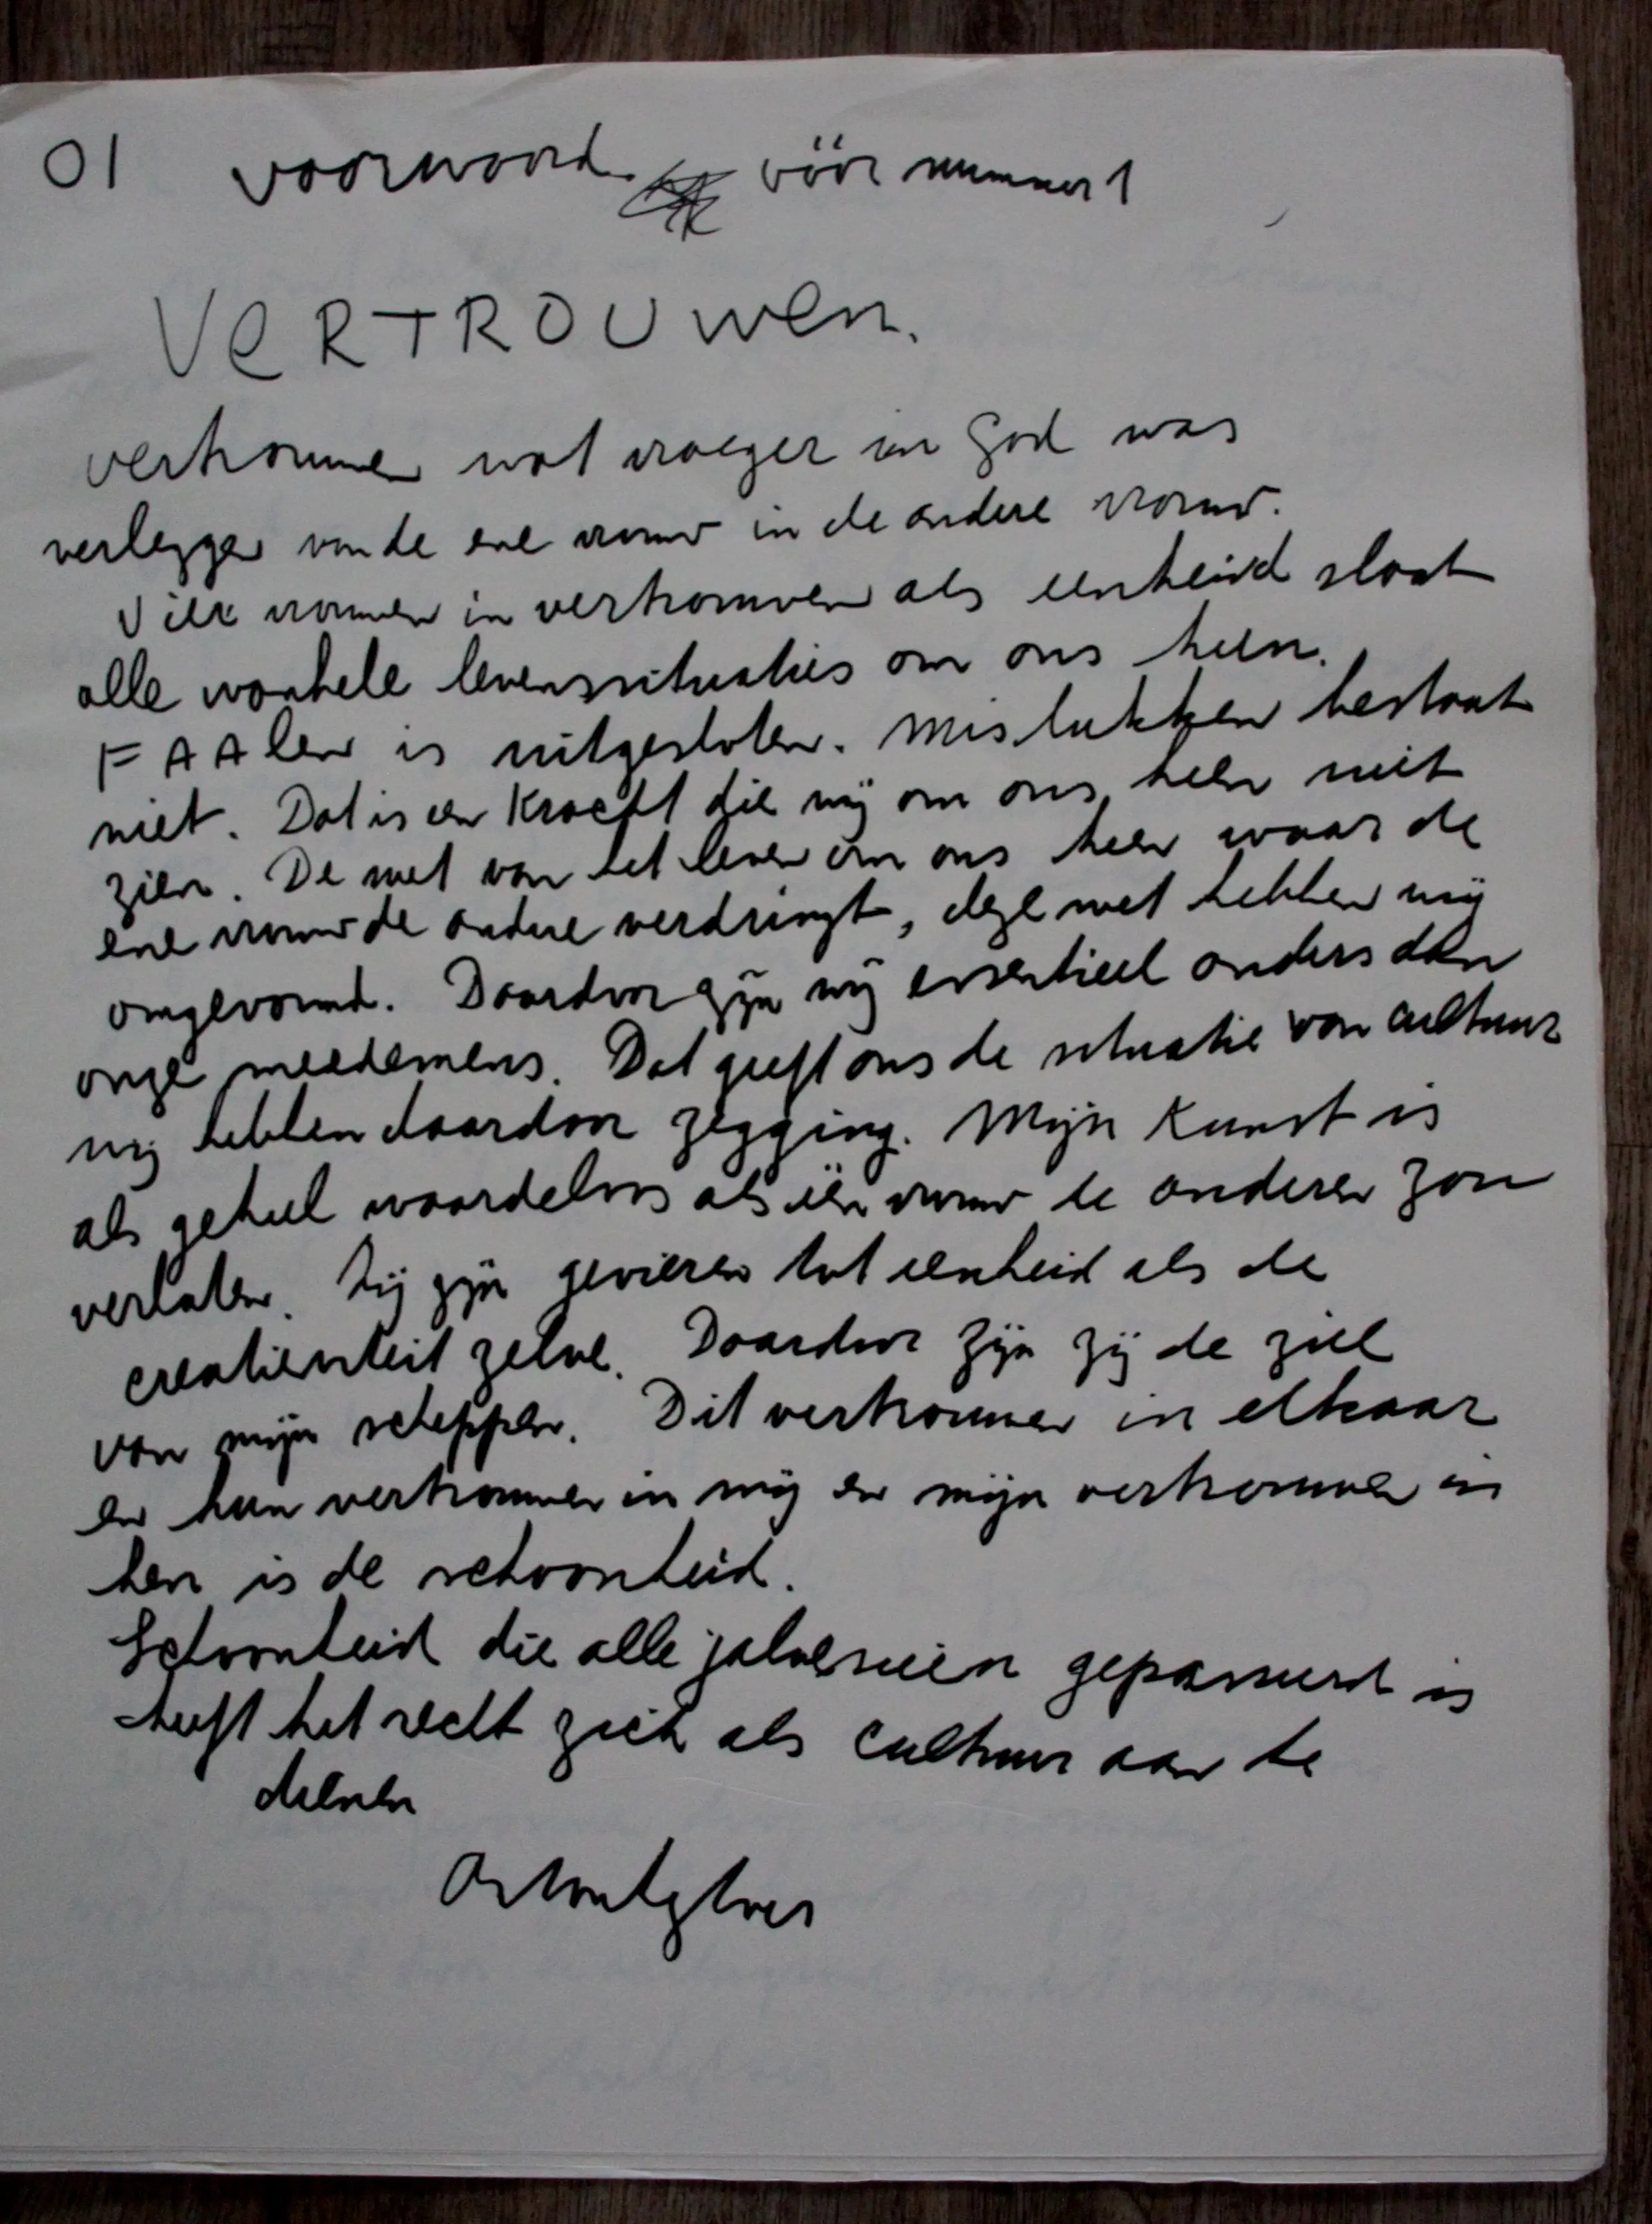 01 voorwoord. vóór nummer 1
VERTROUwen.
vertrouwen wat vroeger in God was
verleggen van de ene vrouw in de andere vrouw.
Vier vrouwen in vertrouwen als eenheid slaat
alle wankele levenssituaties om ons heen.
FAAlen is uitgesloten. Mislukken bestaat
niet. Dat is een Kracht die wij om ons heen niet
zien. De wet van het leven om ons heen waar de
ene vrouw de andere verdringt, deze wet hebben wij
omgevormd. Daardoor zijn wij essentieel anders dan
onze meedemens. Dat geeft ons de situatie van cultuur
wij hebben daardoor zegging. Mijn Kunst is
als geheel waardeloos als één vrouw de anderen zou
verlaten. Zij zijn gevieren tot eenheid als de
creatieviteit zelve. Daardoor zijn zij de ziel
van mijn scheppen. Dit vertrouwen in elkaar
en hun vertrouwen in mij en mijn vertrouwen in
hen is de schoonheid.
Schoonheid die alle jaloesieën gepasseerd is
heeft het recht zich als cultuur aan te
dienen